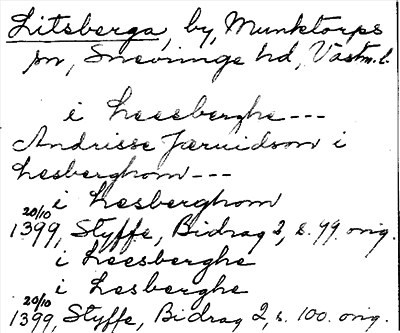 Litsberga, by, Munktorps
sn, Snevringe hd, Västm. l.
i Leeeberghe ---
Andrisse Jæruidson i
Lesberghom ---
i Lesberghom
20/10 1399, Styffe, Bidrag 2, s. 99. orig.
i Leesberghe
i Lesberghe
20/10 1399, Styffe, Bidrag 2, s. 100. orig.